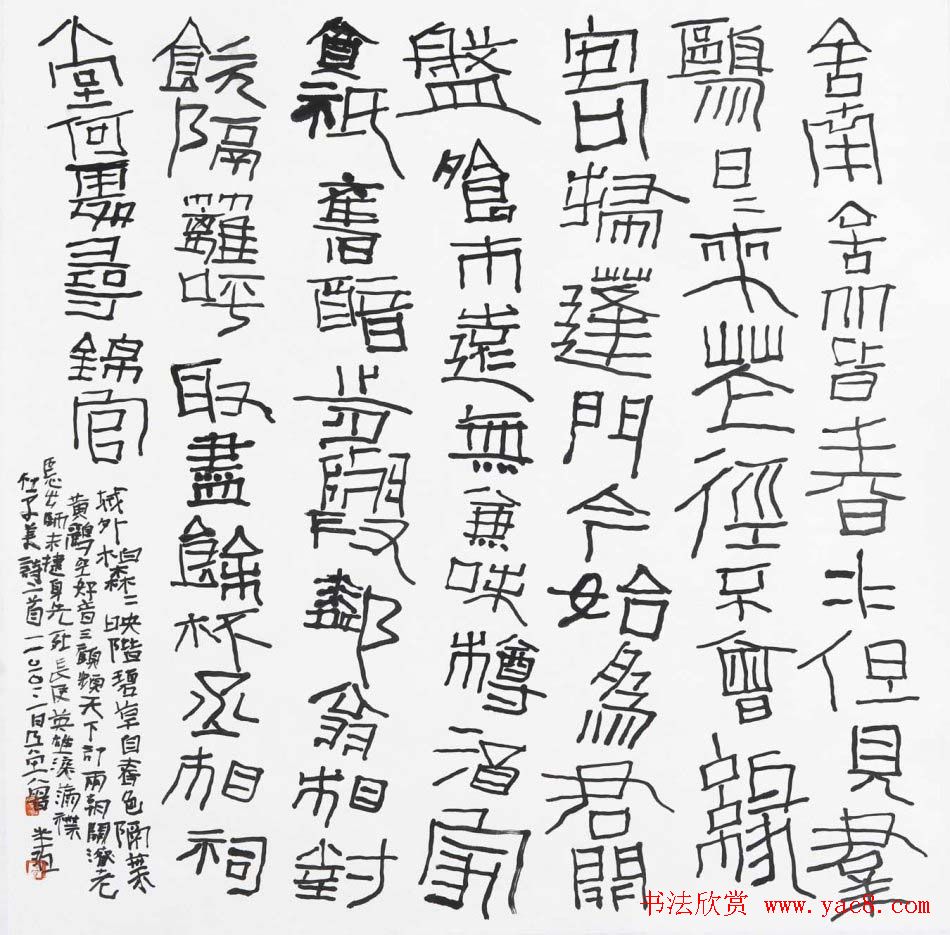 舍南舍北皆春水但見羣
鷗日二來花徑不曾緣
客掃蓬門今始為君開
盤飧市遠無兼味樽酒家
貧祇舊醅肯與鄰翁相對
飲隔籬呼取盡餘杯丞相祠
堂何處尋錦官
城外柏森二映階碧草自春色隔葉
黃鸝空好音三顧頻天下計兩朝開濟老
臣心出師未捷身先死長使英雄淚滿襟
杜子美詩二首
书法欣赏 www.yac8.com